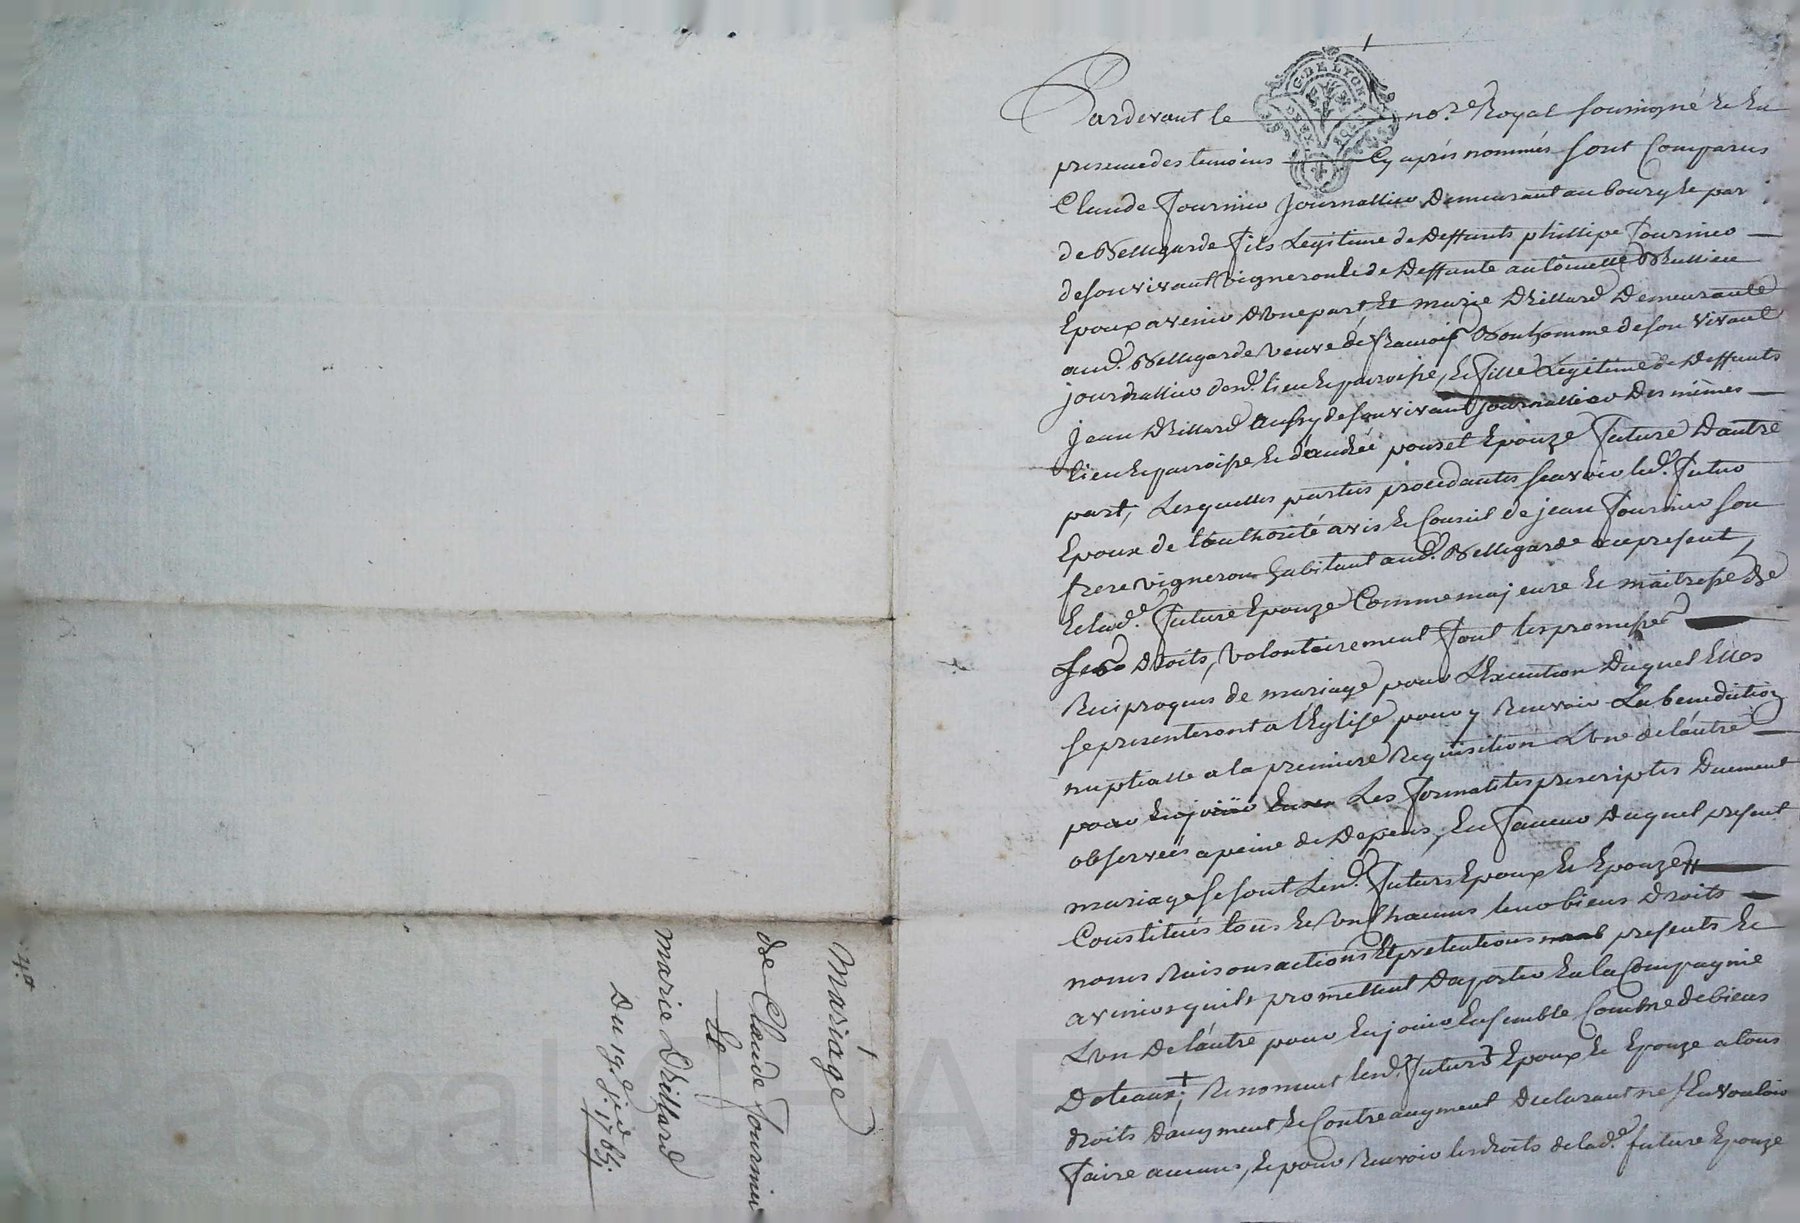 G. DE LYON
Pardevant le no.re Royal soussigné Et En
presence des temoins Cy aprés nommés sont Comparus
Claude Fournier Journallier Demeurant au bourg Et par
de Bellegarde fils Legitime de Deffunts phillipe Fournier
de son vivant vigneron Et de Deffunte antoinette
Epoux avenir D'Une part Et marie Drillard Demeurante
aud. Bellegarde veuve de françois Bonhomme de son vivant
journallier dud. lieu Et paroisse, Et fille Legitime de Deffunts
jean Drillard de son vivant journallier Des mêmes
lieu Et paroisse Et Epouze future D'autre
part, Lesquelles parties procedantes sçavoir led. futur
Epoux de l'authorité avis Et Conseil de jean Fournier son
frere vigneron habitant aud. Bellegarde ace present,
Et lad.e future Epouze Comme majeure Et maitresse De
ses Droits, volontairement font les promesses
Reciproques de mariage pour L'Execution Duquel Elles
se presenteront a l'Eglise pour y Recevoir La benediction
nuptialle a la premiere Requisition L'Une de l'autre
pour Les formalites prescriptes Duement
observées a peine de Depens, En faveur Duquel present
mariage se sont Lesd. futurs Epoux Et Epouze
Constitués tous Et Un Chacuns leur biens Droits
noms Raisons actions Et pretentions presents Et
avenir qu'ils promettent D'aporter En la Compagnie
L'un De l'autre pour En jouir Ensemble Comme de biens
Doteaux; Renoncent lesd. futurs Epoux Et Epouze a tous
droits D'augment Et Contreaugment Declarant ne s'En vouloir
faire aucuns, Et pour Recevoir les droits de lad.e future Epouze
Mariage
de Claude Fournier
Et
marie Drillard
Du 19.
Pascal CHAR